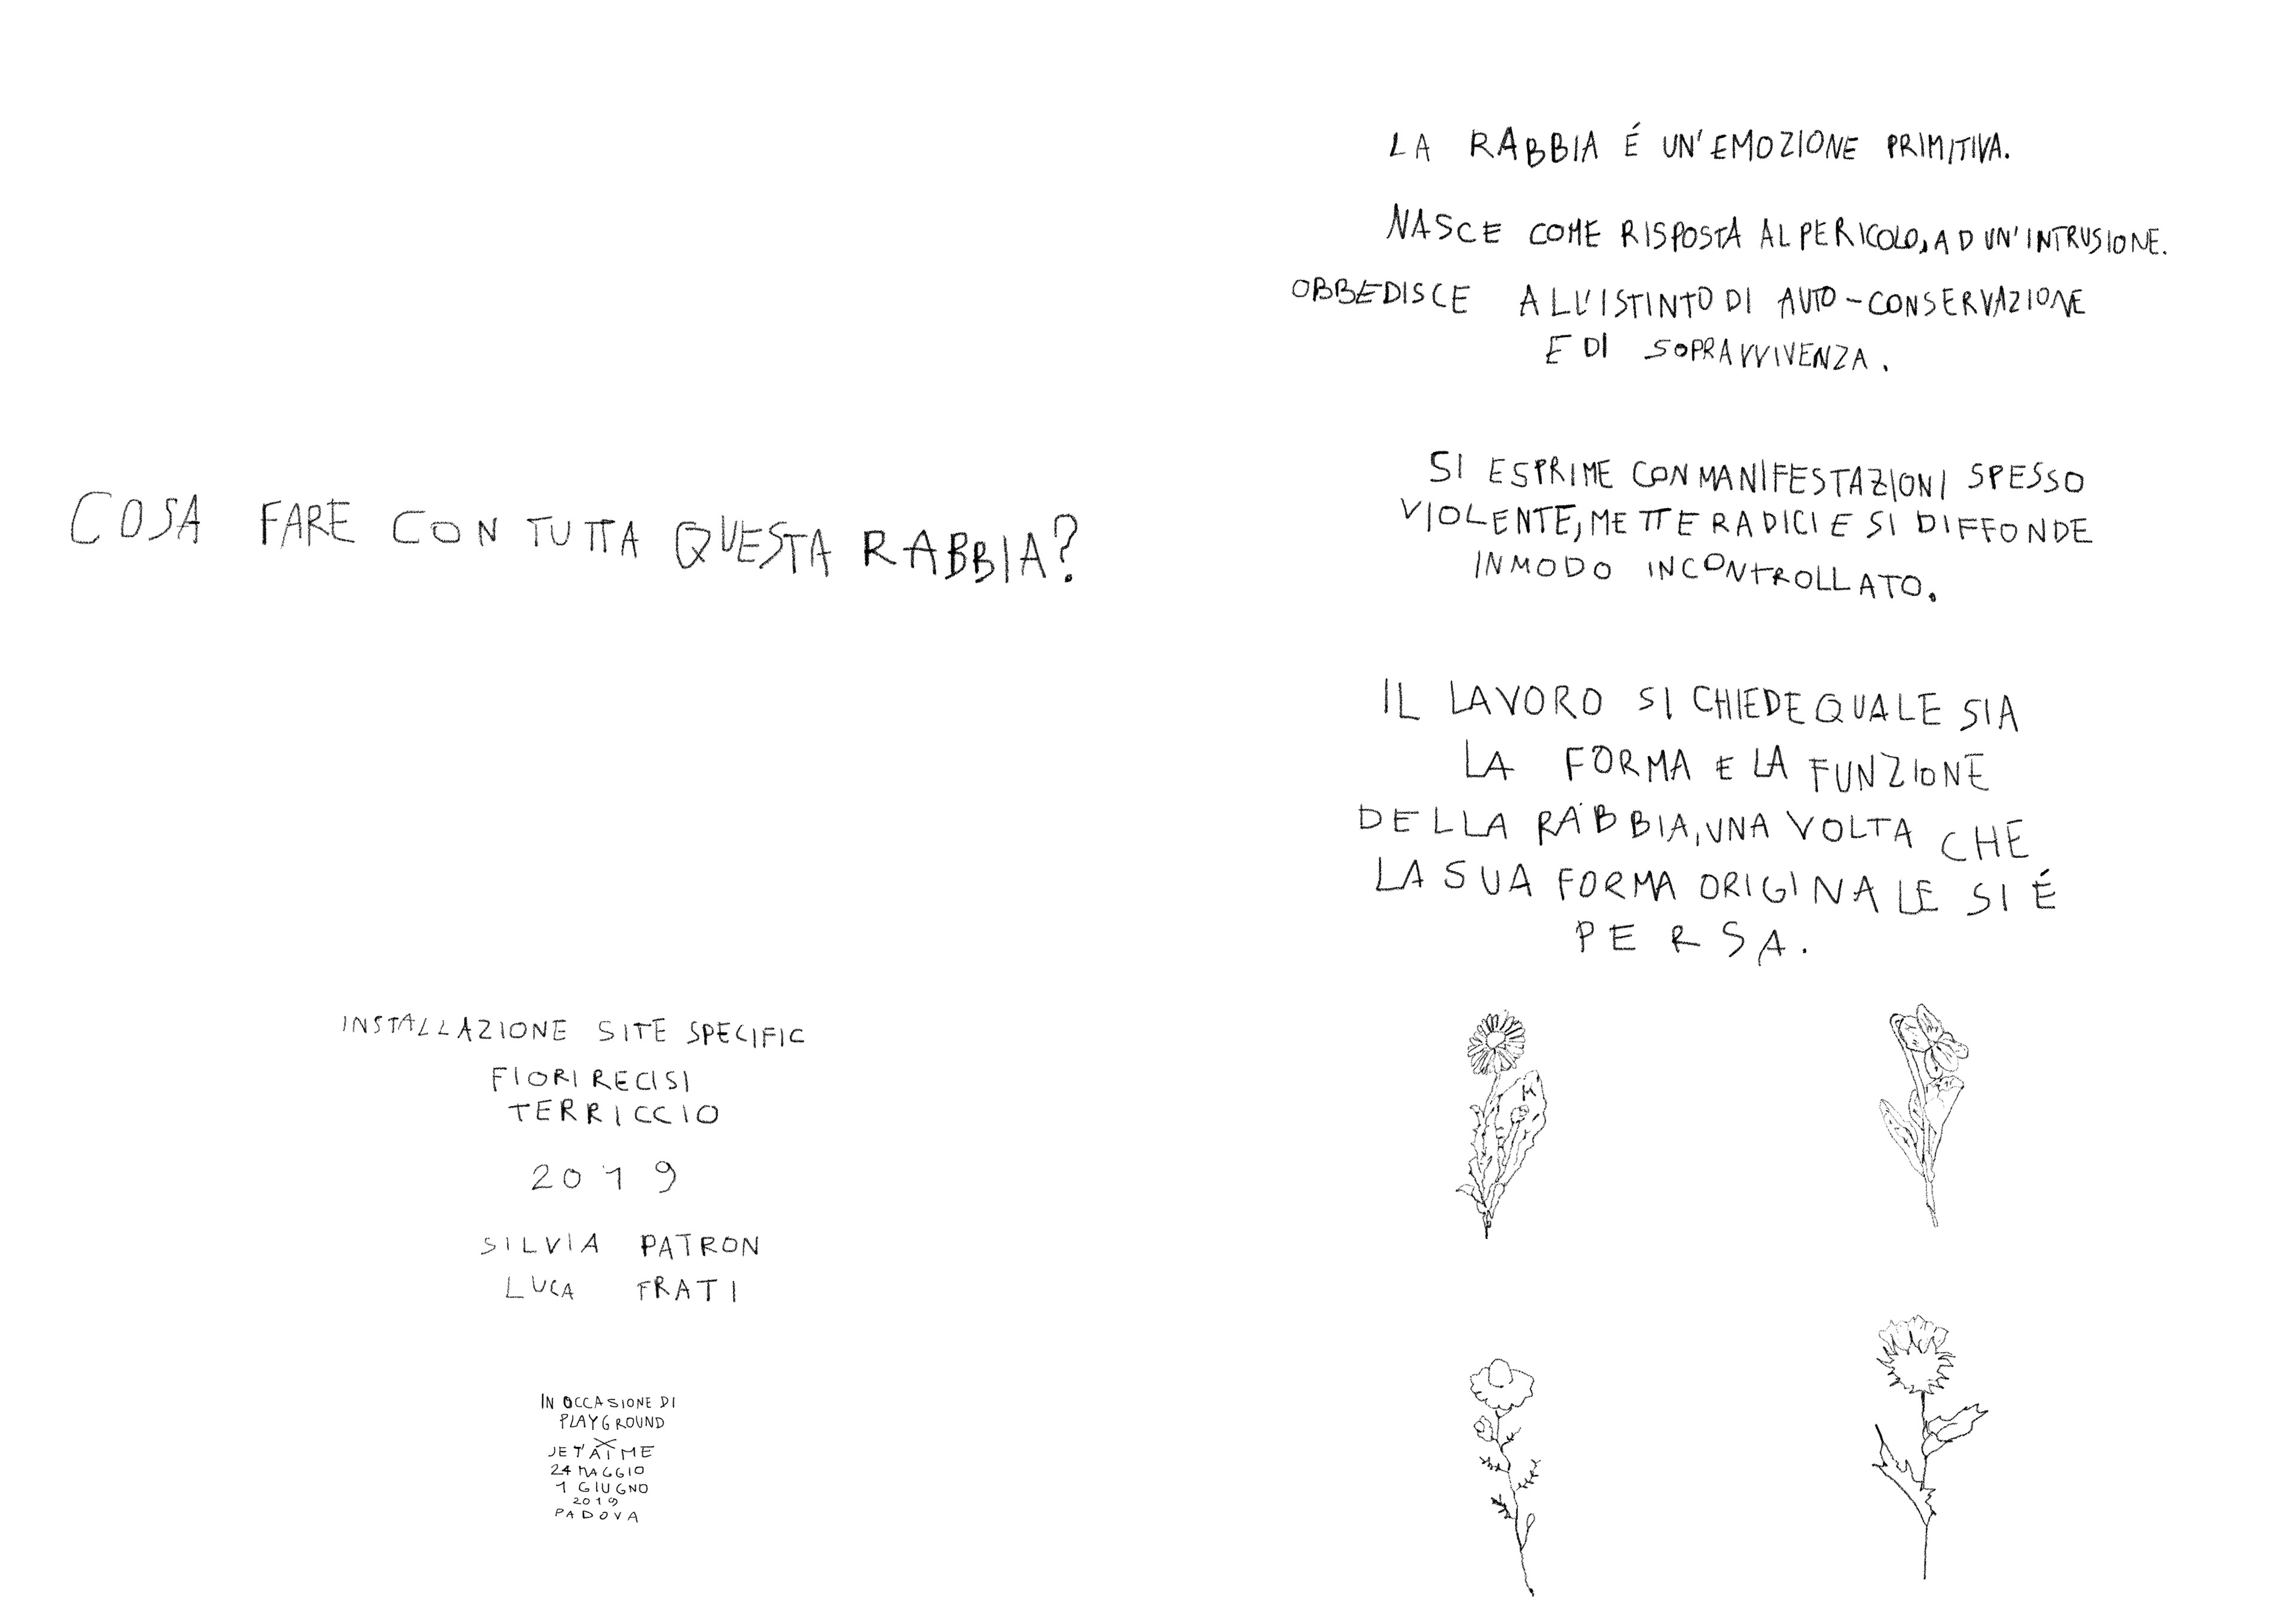 COSA FARE CON TUTTA QUESTA RABBIA?
INSTALLAZIONE SITE SPECIFIC
FIORI RECISI
TERRICCIO
2019
SILVIA PATRON
LUCA FRATI
IN OCCASIONE DI
PLAYGROUND
X
JE T'AIME
24 MAGGIO
1 GIUGNO
2019
PADOVA
LA RABBIA É UN'EMOZIONE PRIMITIVA.
NASCE COME RISPOSTA AL PERICOLO, AD UN'INTRUSIONE.
OBBEDISCE ALL'ISTINTO DI AUTO-CONSERVAZIONE
E DI SOPRAVVIVENZA.
SI ESPRIME CON MANIFESTAZIONI SPESSO
VIOLENTE, METTE RADICI E SI DIFFONDE
IN MODO INCONTROLLATO.
IL LAVORO SI CHIEDE QUALE SIA
LA FORMA E LA FUNZIONE
DELLA RABBIA, UNA VOLTA CHE
LA SUA FORMA ORIGINALE SI É
PERSA.